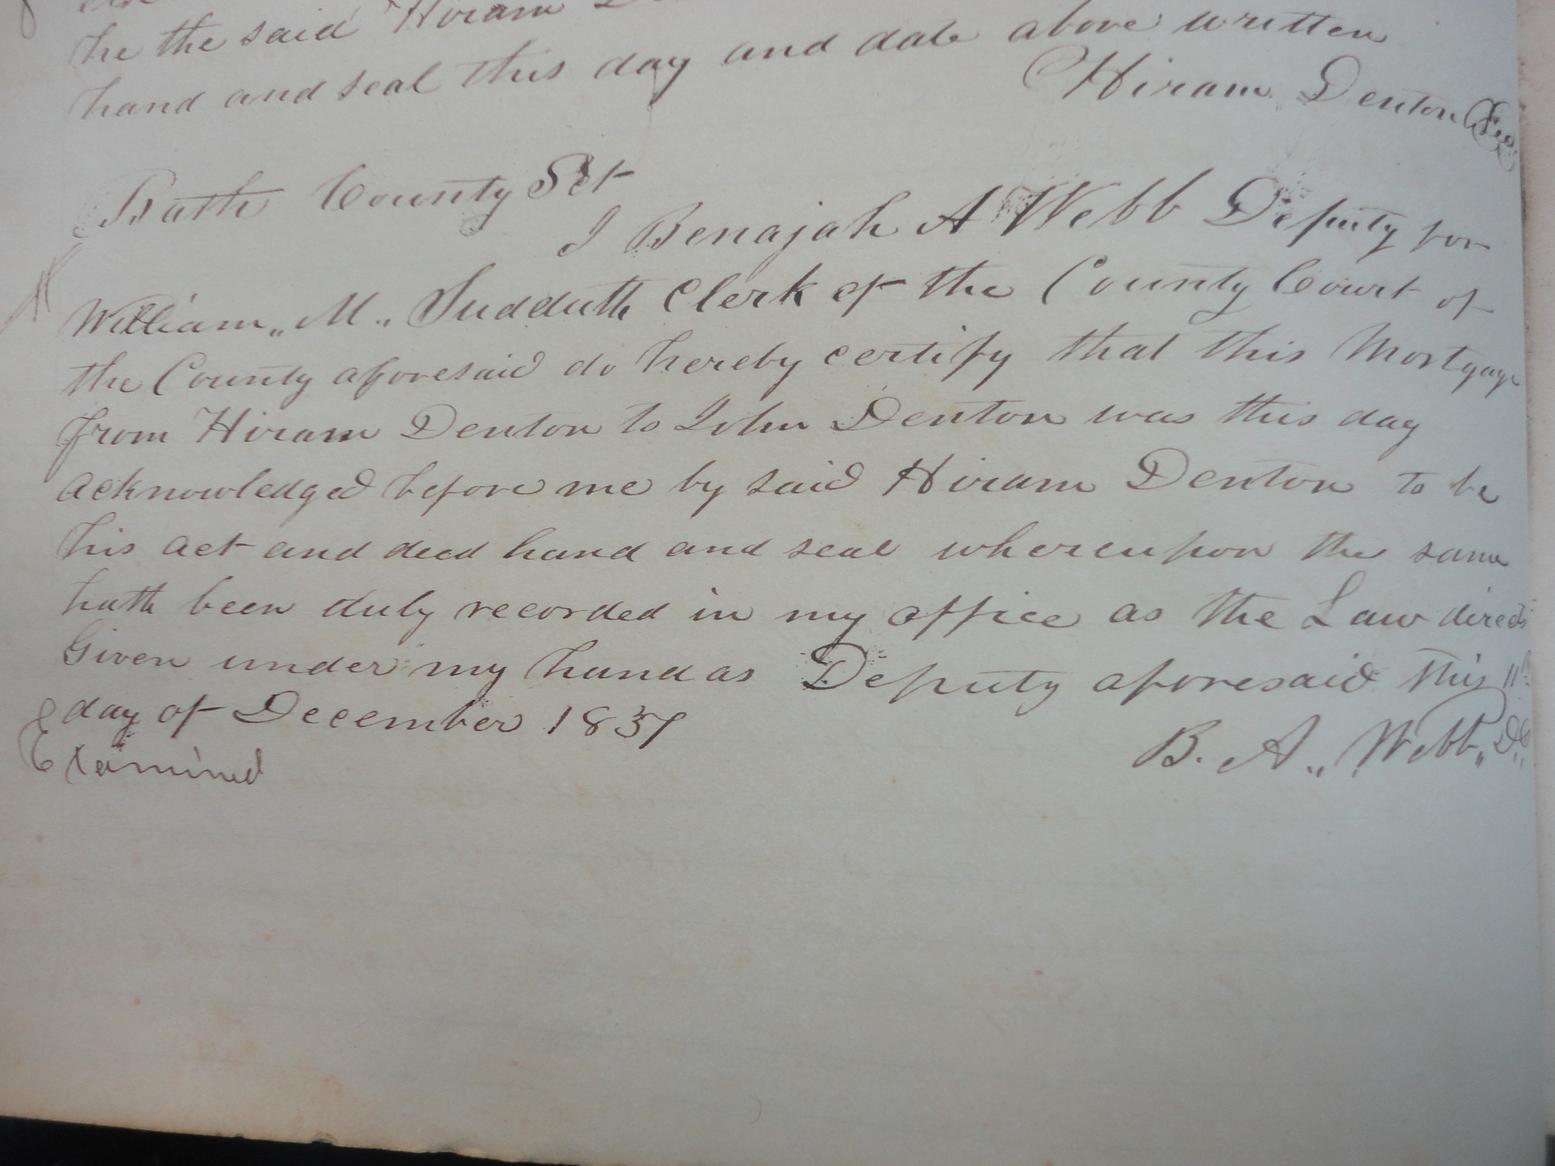 he the said Hiram
hand and seal this day and date above written
Hiram Denton
Bath County Sct
I Benajah A Webb Deputy for
William,, M., Sudduth Clerk of the County Court of
the County aforesaid do hereby certify that this Mortgage
from Hiram Denton to John Denton was this day
acknowledged before me by said Hiram Denton to be
his act and deed hand and seal whereupon the same
hath been duly recorded in my office as the Law directs
Given under my hand as Deputy aforesaid this 11th
day of December 1837
B. A,, Webb,, D.C.
Examined